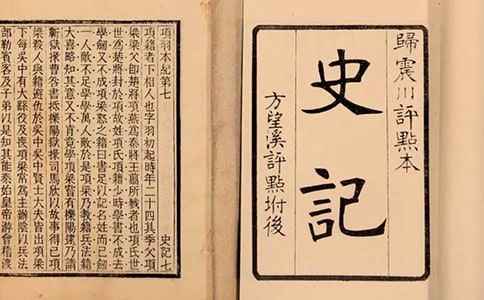 歸震川評點本
史記
方望溪評點坿後
項羽本紀第七
史記七
項籍者下相人也字羽初起時年二十四其季父項
梁梁父即楚將項燕爲秦將王翦所戮者也項氏世
世爲楚將封於項故姓項氏項籍少時學書不成去
學劍又不成項梁怒之籍曰書足以記名姓而已劍
一人敵不足學學萬人敵於是項梁乃教籍兵法籍
大喜略知其意又不肯竟學項梁嘗有櫟陽逮乃請
蘄獄掾曹咎書抵櫟陽獄掾司馬欣以故事得已項
梁殺人與籍避仇於吳中吳中賢士大夫皆出項梁
下每吳中有大繇役及喪項梁常爲主辦陰以兵法
部勒賓客及子弟以是知其能秦始皇帝游會稽渡